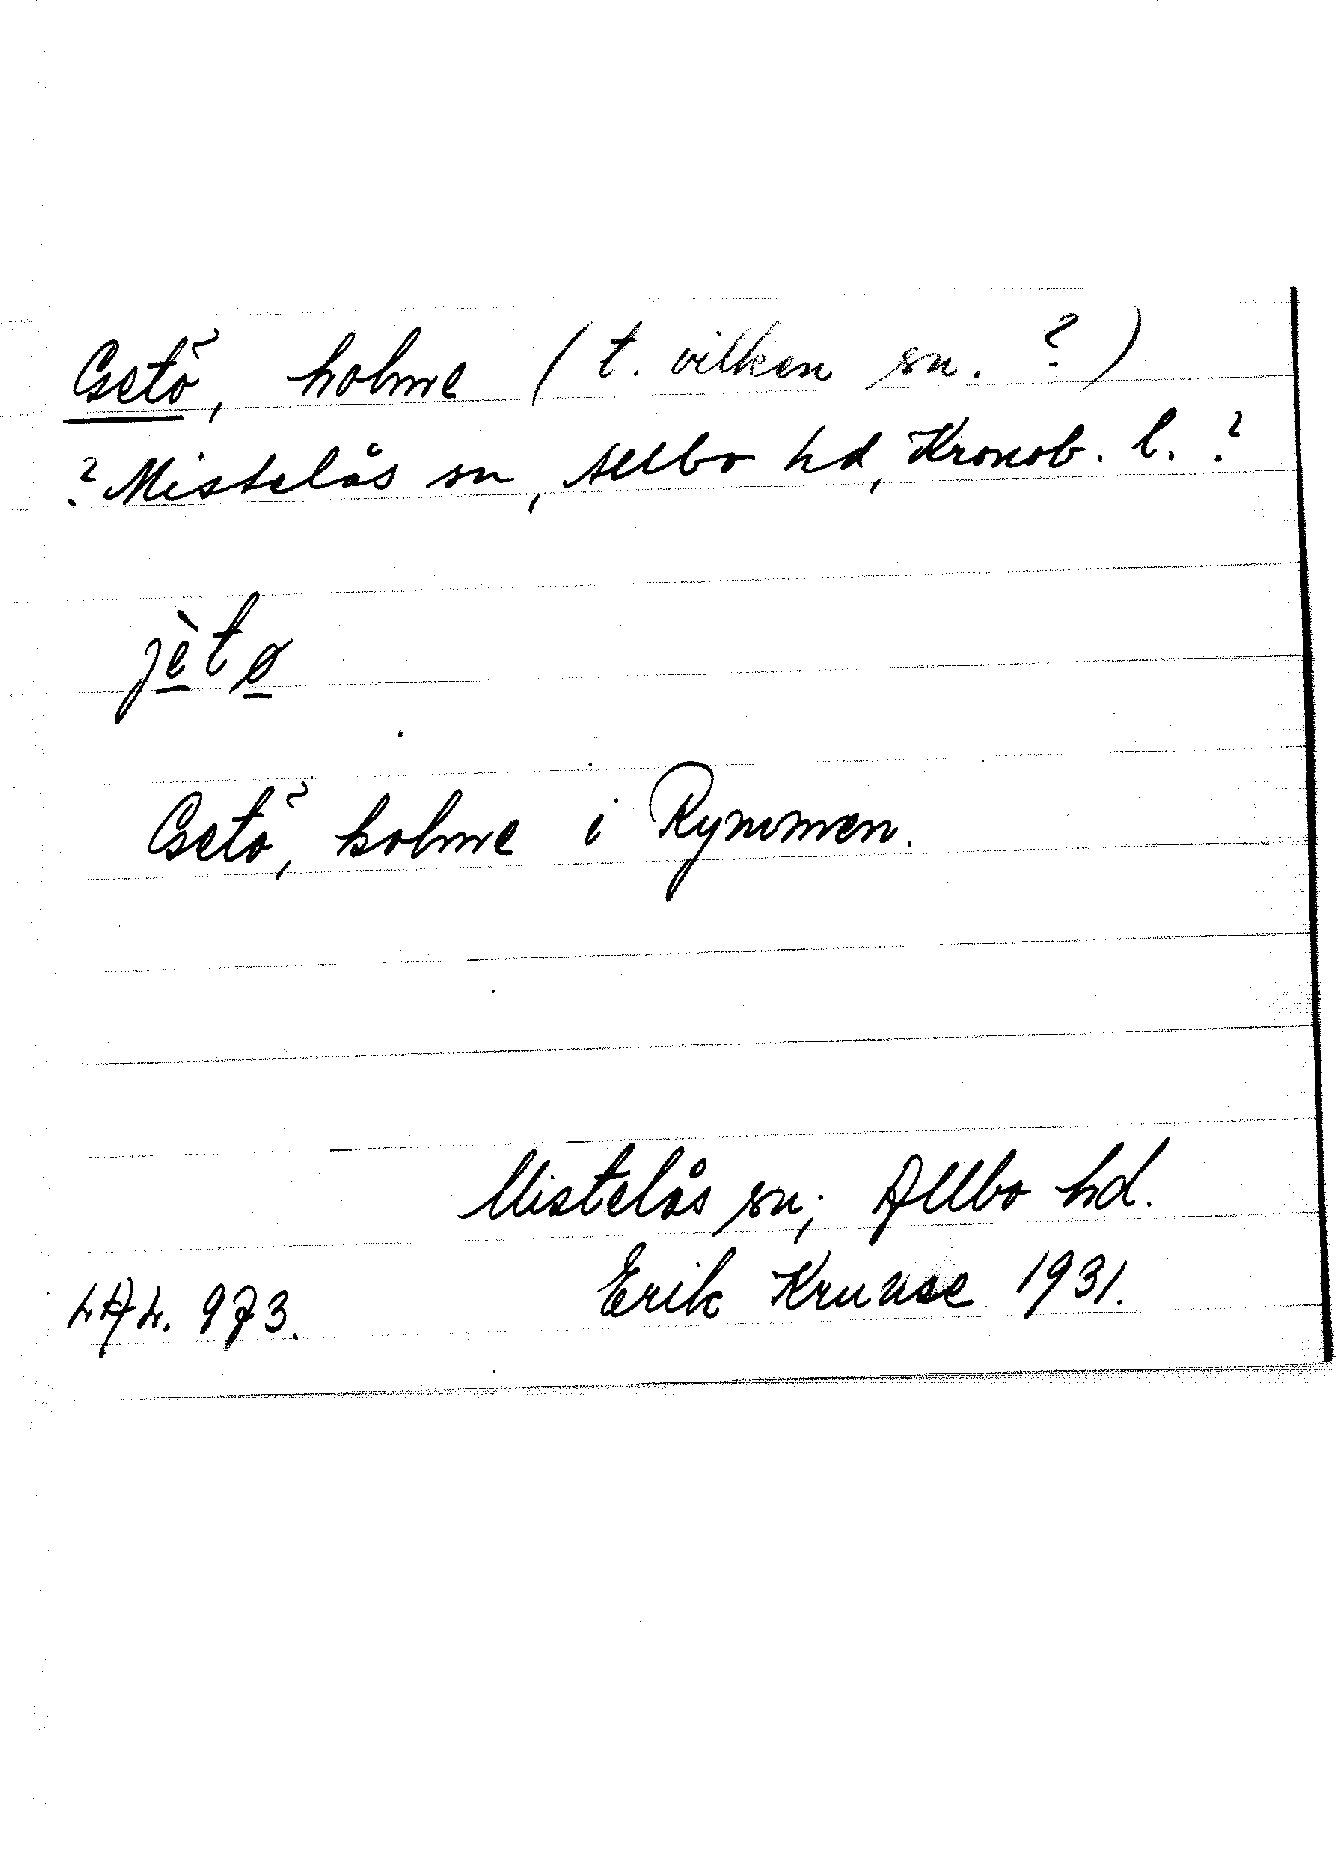 Getö, holme (t. vilken sn. ?)
? Mistelås sn, Allbo hd, Kronob. l. ?
jètø
Getö, holme i Rymmen.
Mistelås sn; Allbo hd.
LAL. 973. Erik Kruuse 1931.